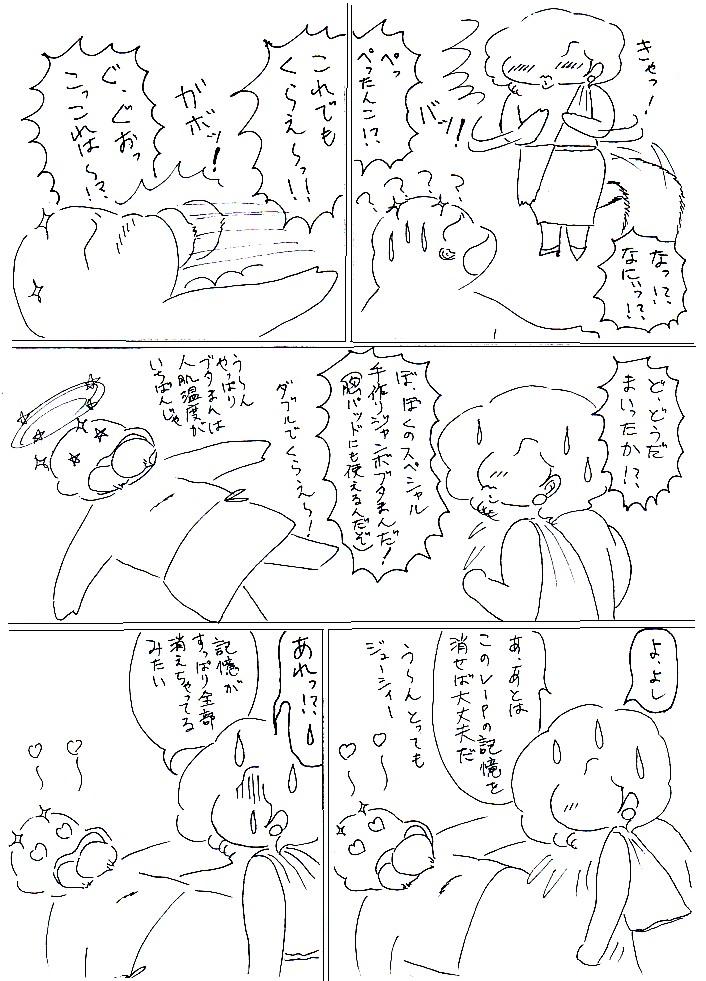 きゃっ！
なっ！？
なにぃっ！？
バッ！
ぺっ
ぺったんこ！？
？？？？
これでも
くらえ〜っ！！
ガボッ！
ぐ、ぐおっ
こっこれは〜！？
ど・どうだ
まいったか！？
ぼ、ぼくのスペシャル
手作りジャンボブタまんだ！
（胸パッドにも使えるんだぞ）
ダブルでくらえ〜！
う〜ん
やっぱり
ブタまんは
人肌温度が
いちばんじゃ
よ、よし
あ、あとは
このVIPの記憶を
消せば大丈夫だ
う〜んとっても
ジューシィー
あれっ！？
記憶が
すっぱり全部
消えちゃってる
みたい